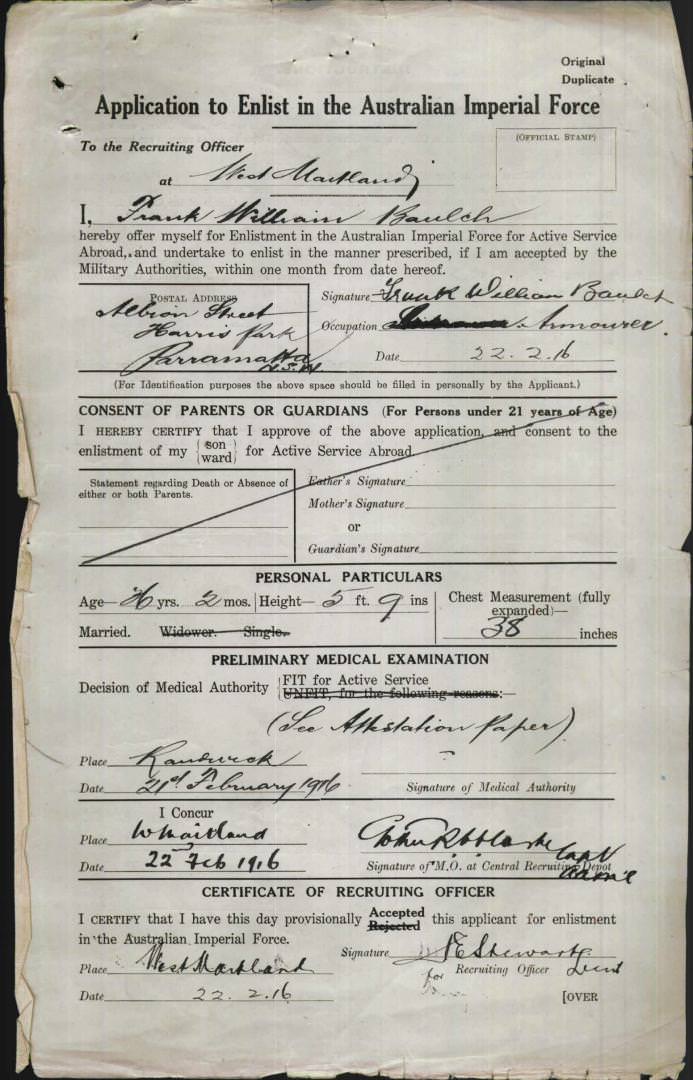 Original
Duplicate
Application to Enlist in the Australian Imperial Force
To the Recruiting Officer
(OFFICIAL STAMP)
at West Maitland
I, Frank William Baulch
hereby offer myself for Enlistment in the Australian Imperial Force for Active Service
Abroad, and undertake to enlist in the manner prescribed, if I am accepted by the
Military Authorities, within one month from date hereof.
POSTAL ADDRESS
Albion Street
Harris Park
Parramatta
N.S.W.
Signature Frank William Baulch
Occupation Armourer.
Date 22.2.16
(For Identification purposes the above space should be filled in personally by the Applicant.)
CONSENT OF PARENTS OR GUARDIANS (For Persons under 21 years of Age)
I HEREBY CERTIFY that I approve of the above application, and consent to the
enlistment of my {son ward} for Active Service Abroad.
Statement regarding Death or Absence of
either or both Parents.
Father's Signature
Mother's Signature
or
Guardian's Signature
PERSONAL PARTICULARS
Age— yrs. 2 mos. Height— 5 ft. 9 ins
Chest Measurement (fully
expanded)—
38 inches
Married. Widower. Single.
PRELIMINARY MEDICAL EXAMINATION
Decision of Medical Authority {FIT for Active Service
UNFIT, for the following reasons:—
(See Attestation Paper)
Place Randwick
Date 21st February 1916
Signature of Medical Authority
I Concur
Place W Maitland
Date 22 Feb 1916
Capt
Signature of M.O. at Central Recruiting Depot
AAMC
CERTIFICATE OF RECRUITING OFFICER
I CERTIFY that I have this day provisionally Accepted Rejected this applicant for enlistment
in the Australian Imperial Force.
Signature JE Stewart
Place West Maitland
for Recruiting Officer Lieut
Date 22.2.16
[OVER